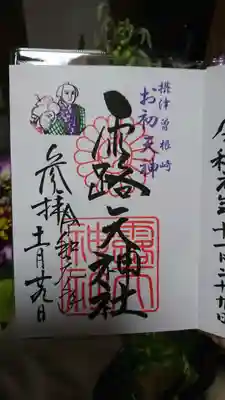 令和元年十一月二十九日
摂津 曽根崎
お初天神
露天神社
露天
神社
参拝 令和元年
十一月廿九日